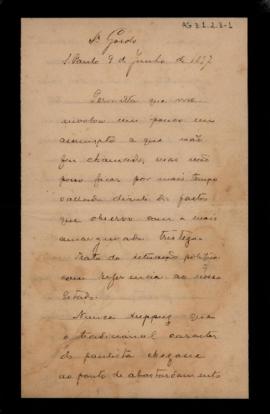 AG 3.1.2.3-1
Sr. Gordo
S. Paulo 9 de Junho de 1897
Permitta que me
envolva um pouco em
assumpto a que não
fui chamado, mas não
posso ficar por mais tempo
calado diante de factos
que observo com a mais
amargurada tristeza.
Trato da situação politica
com referencia ao nosso
Estado.
Nunca suppuz que
o tradicional caracter
do paulista chegasse
ao ponto de abastardamento